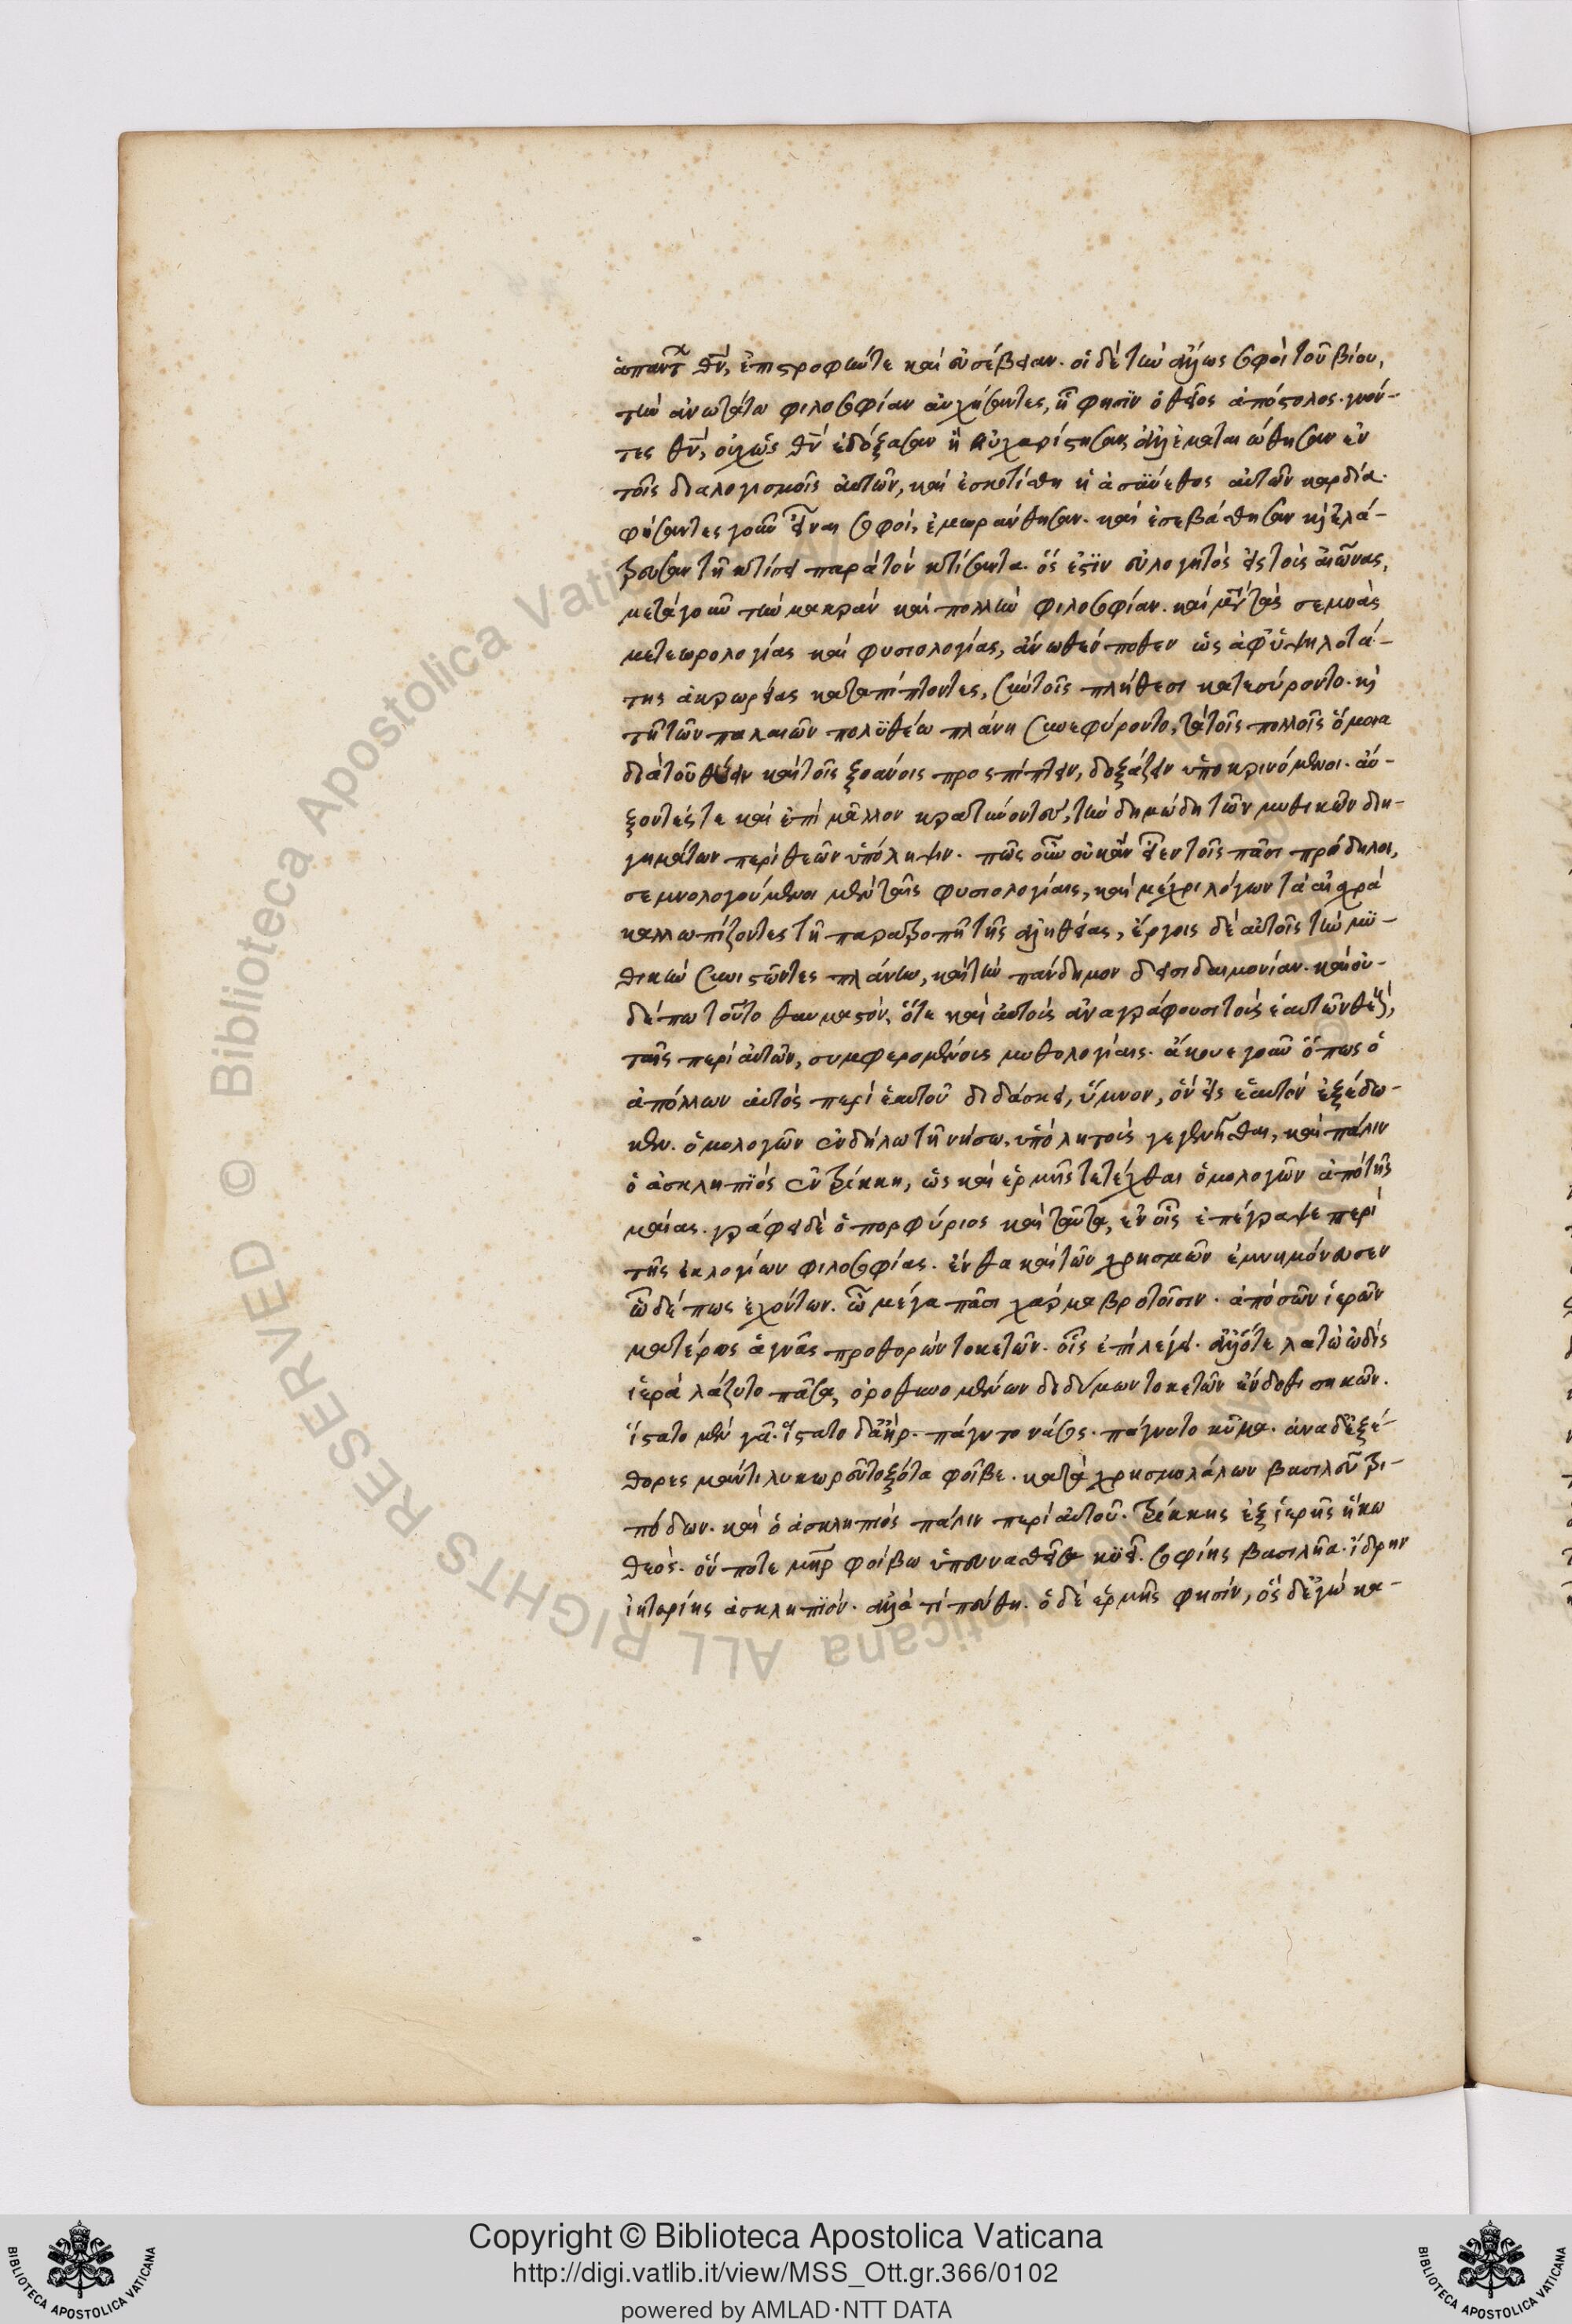 ἁπάντων θν̄, ἐπιγραφωντε καὶ εὐσέβειαν. οἱ δὲ τὴν ἄλλως σοφοὶ τοῦ βίου,
τὴν ἀνωτάτω φιλοσοφίαν αὐχήσαντες, ᾗ φησὶν ὁ θεῖος ἀπόστολος. γνόν-
τες θν̄, οὐχ ὡς θν̄ ἐδόξασαν ἢ εὐχαρίστησαν, ἀλλ' ἐματαιώθησαν ἐν
τοῖς διαλογισμοῖς αὐτῶν, καὶ ἐσκοτίσθη ἡ ἀσύνετος αὐτῶν καρδία.
φήσαντες γοῦν εἶναι σοφοί, ἐμωράνθησαν. καὶ ἐσεβάσθησαν κ(αὶ) ἐλά-
τρευσαν τῆ κτίσει παρὰ τὸν κτίσαντα. ὅς ἐστὶν εὐλογητὸς εἰς τοὺς αἰῶνας,
μετὰ γοῦν τὴν μακρὰν καὶ πολλὴν φιλοσοφίαν. καὶ μετὰ τὰς σεμνὰς
μετεωρολογίας καὶ φυσιολογίας, ἄνωθέν ποθεν ὡς ἀφ' ὑψηλοτά-
της ἀκρωρείας καταπίπτοντες, σὺν τοῖς πλήθεσι κατεσύροντο. κ(αὶ)
τῆ τῶν παλαιῶν πολυθέω πλάνη συνεφύροντο, τὰ τοῖς πολλοῖς ὅμοια
διὰ τοῦ θύειν καὶ τοῖς ξοάνοις προσπίπτειν, δοξάζειν ὑποκρινόμενοι. αὔ-
ξοντές τε καὶ ἐπὶ μᾶλλον κρατύνοντες, τὴν δημώδη τῶν μυθικῶν διη-
γημάτων περὶ θεῶν ὑπόληψιν. πῶς οὖν οὐκ ἂν εἶεν τοῖς πᾶσι πρόδηλοι,
σεμνολογούμενοι μὲν ταῖς φυσιολογίαις, καὶ μέχρι λόγων τὰ αἰσχρὰ
καλλωπίζοντες τῆ παρατροπῆ τῆς ἀληθείας, ἔργοις δὲ αὐτοῖς τὴν μυ-
θικὴν συνιστῶντες πλάνην, καὶ τὴν πάνδημον δεισιδαιμονίαν. καὶ οὐ-
δέπω τοῦτο θαυμαστόν, ὅτε καὶ αὐτοὺς ἀναγράφουσι τοὺς ἑαυτῶν θεούς,
ταῖς περὶ αὐτῶν, συμφερομένους μυθολογίαις. ἄκουε γοῦν ὅπως ὁ
ἀπόλλων αὐτὸς περὶ ἑαυτοῦ διδάσκει, ὕμνον, ὃν εἰς ἑαυτὸν ἐξέδω-
κεν. ὁμολογῶν ἐν δήλω τῆ νήσω, ὑπὸ λητοῦς γεγενῆσθαι, καὶ πάλιν
ὁ ἀσκληπϊὸς ἐν τρίκκη, ὡς καὶ ἑρμῆς τετέχθαι ὁμολογῶν ἀπὸ τῆς
μαίας. γράφει δὲ ὁ πορφύριος καὶ ταῦτα, ἐν οἷς ἐπέγραψε περὶ
τῆς ἐκ λογίων φιλοσοφίας. ἔνθα καὶ τῶν χρησμῶν ἐμνημόνευσεν
ὧδέ πως ἐχόντων. ὦ μέγα πᾶσι χάρμα βροτοῖσιν. ἀπὸ σῶν ἱερῶν
ματέρος ἁγνᾶς προθορὼν τοκετῶν. οἷς ἐπιλέγει. ἀλλ' ὅτε λατὼ ὠδὶς
ἱερὰ λάζυτο πᾶσα, ὀροθυνομένων διδύμων τοκετῶν ἔνδοθι σηκῶν.
ἵστατο μὲν γᾶ. ἵστατο δ' ἀήρ. πάγνυτο νᾶσος. πάγνυτο κῦμα. ἀνὰ δ' ἐξέ-
θορες μάντι λυκωρεῦ τοξότα φοῖβε. κατὰ χρησμολάλων βασιλεῦ τρι-
πόδων. καὶ ὁ ἀσκληπιὸς πάλιν περὶ αὐτοῦ. τρίκκης ἐξ ἱερῆς ἥκω
θεός. ὅν ποτε μήτηρ φοίβω ὑπευναθεῖσα κυεῖ. σοφίης βασιλῆα. ἴδριν
ἰητορίης ἀσκληπϊόν. ἀλλὰ τί πεύθη. ὁ δὲ ἑρμῆς φησίν, ὃς δ' ἐγὼ κα-
Copyright © Biblioteca Apostolica Vaticana
http://digi.vatlib.it/view/MSS_Ott.gr.366/0102
powered by AMLAD·NTT DATA